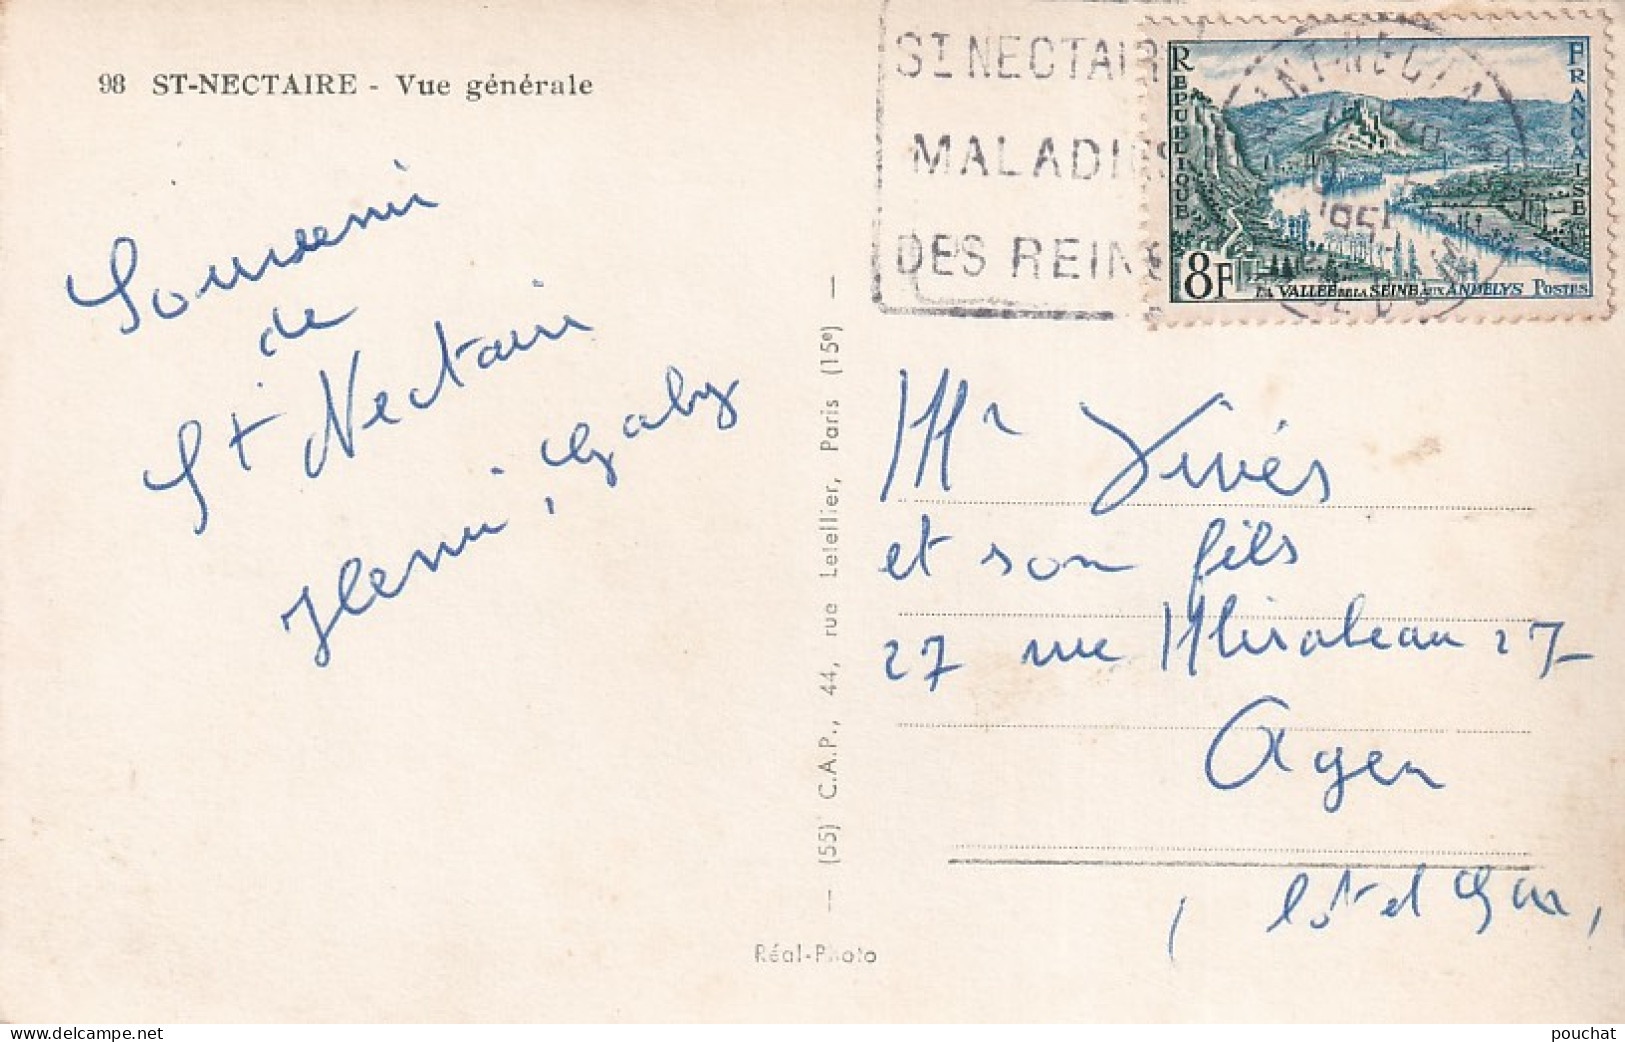 98 ST-NECTAIRE - Vue générale
Souvenir
de
St Nectaire
Henri, Gaby
ST NECTAIRE
MALADIES
DES REINS
RÉPUBLIQUE
FRANÇAISE
8F
LA VALLÉE DE LA SEINE AUX ANDELYS POSTES
Mr Vivès
et son fils
27 rue Mirabeau 27
Agen
(Lot et Gar)
— (55) C.A.P., 44, rue Letellier, Paris (15e) —
Réal-Photo
pouchat